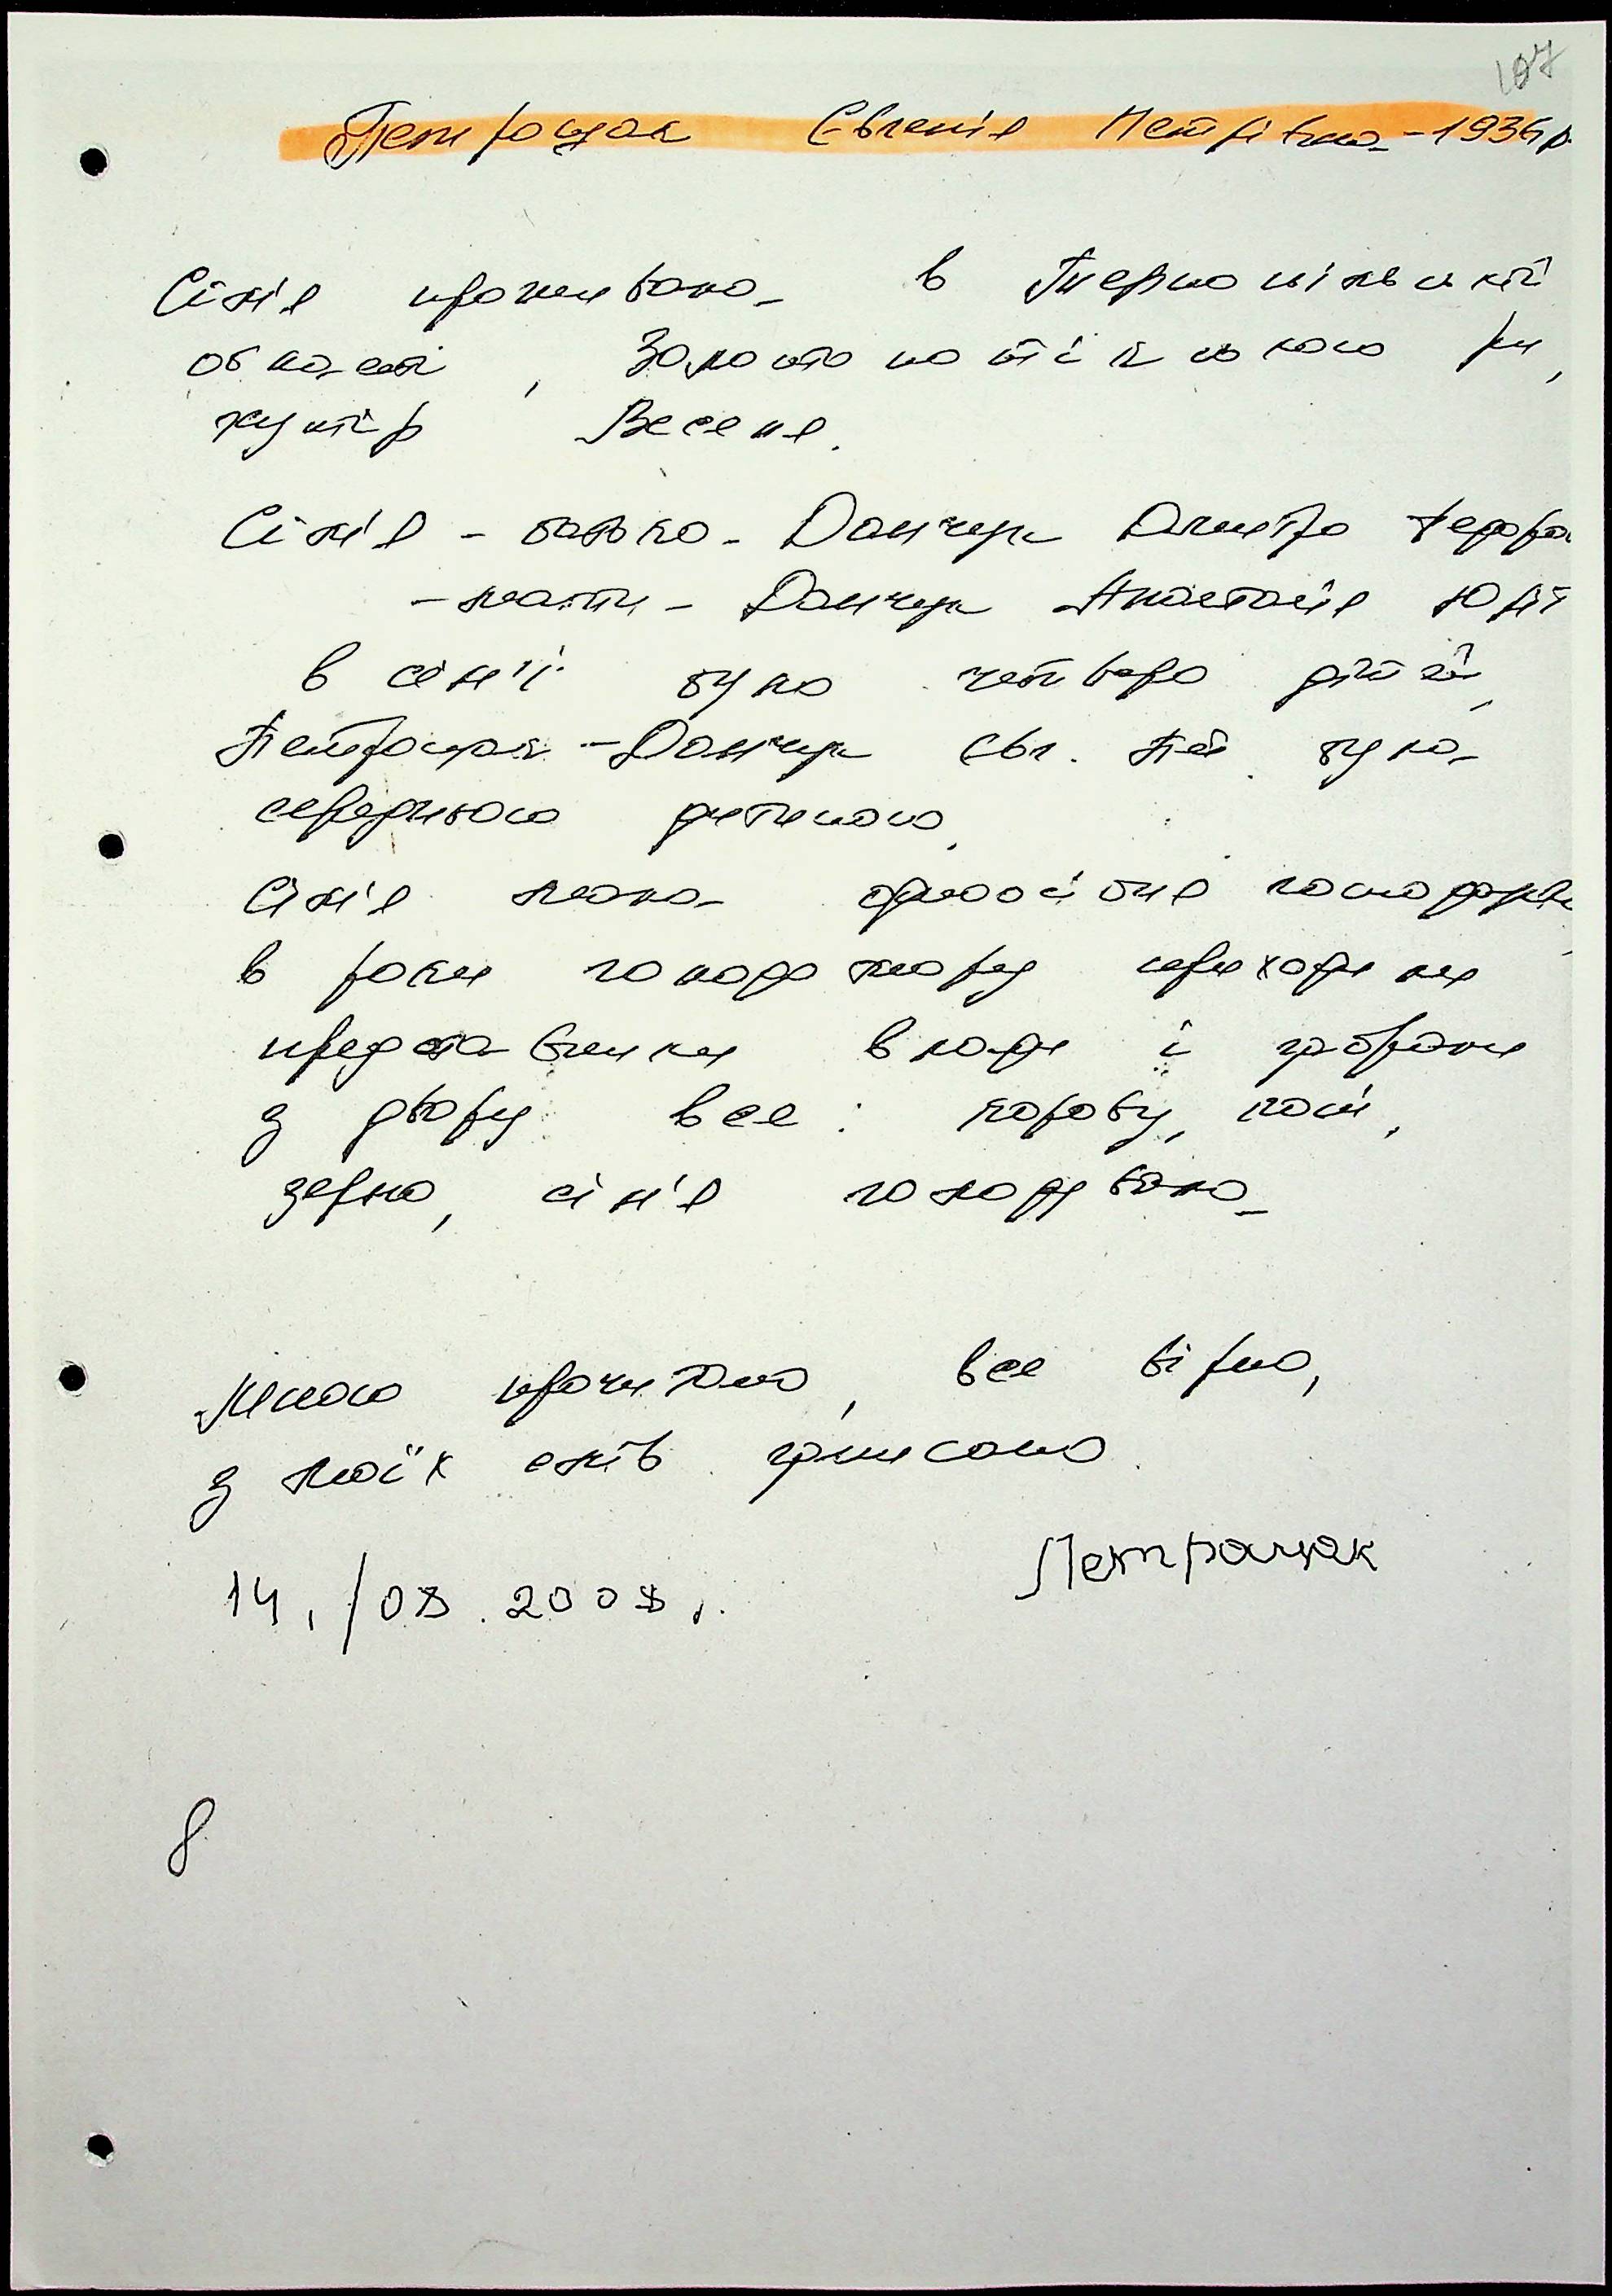 107
Петрощак Євгенія Петрівна - 1936 р.
Сім'я проживала в Тернопільській
області, Золотопотіцького р-н,
хутір Веселе.
Сім'я - батько - Данчук Дмитро Федоро
- мати - Данчук Анастасія Юрії
в сім'ї було четверо дітей,
Петрощак - Данчук Євг. Пет. була
середньою дитиною.
Сім'я мала одноосібне господарств
в роки голодомору приходили
представники влади і забрали
з двору все: корову, коні,
зерно, сім'я голодувала
Мною прочитано, все вірно,
з моїх слів записано.
Петращак
14. /08. 2008 р.
8